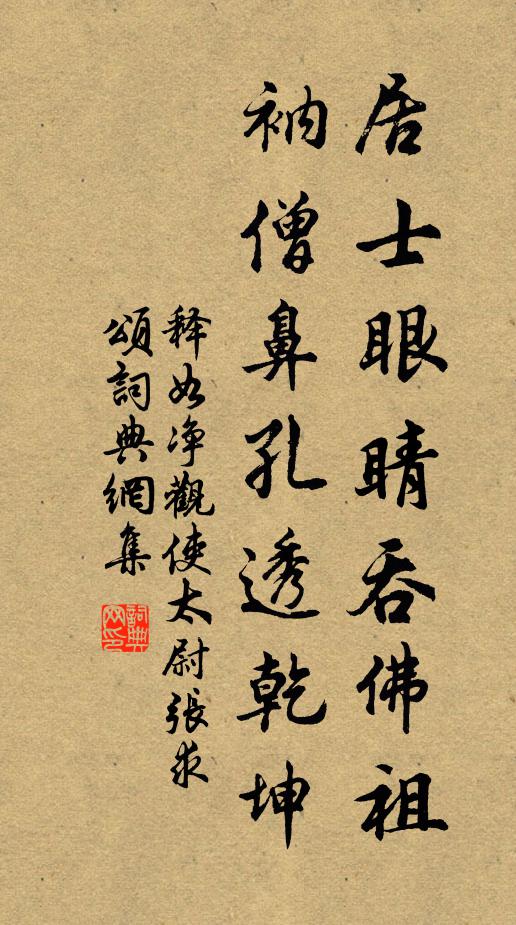 居士眼睛吞佛祖
衲僧鼻孔透乾坤
释如净觀使太尉張求
頌詞典網集
詞典
网印